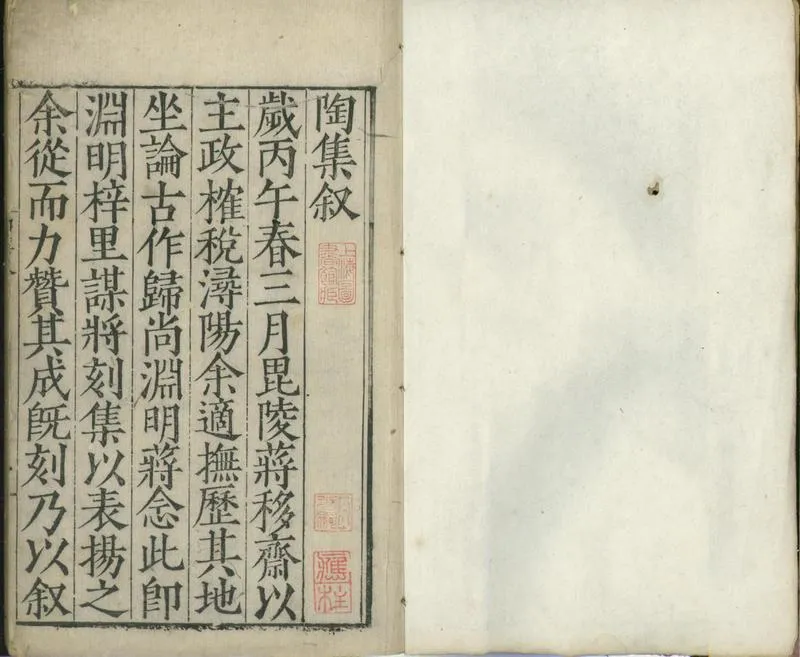 陶集叙
歲丙午春三月毘陵蔣移齋以
主政榷稅潯陽余適撫歷其地
坐論古作歸尚淵明蔣念此卽
淵明梓里謀將刻集以表揚之
余從而力贊其成旣刻乃以叙
上海圖書館藏